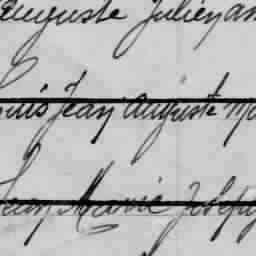 Auguste Julien
Louis Jean Auguste
Jean Marie Joseph